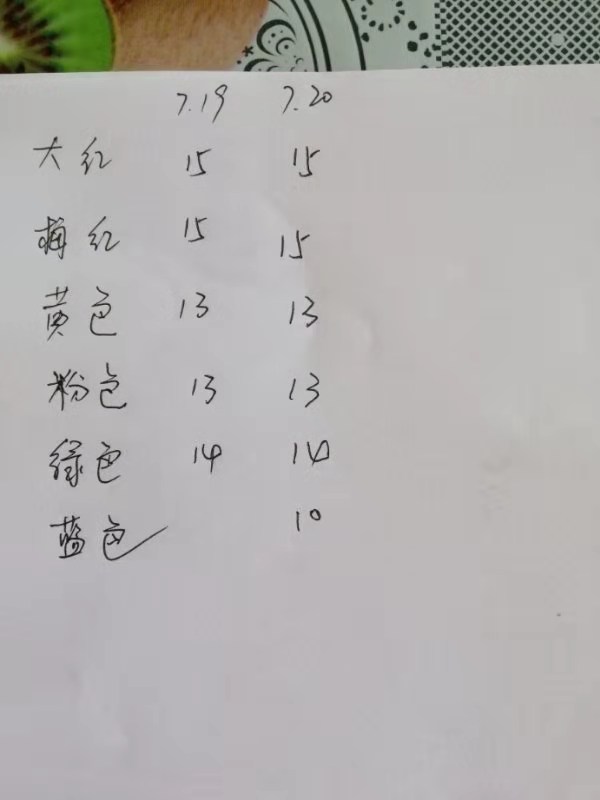 7.19 7.20
大红 15 15
梅红 15 15
黄色 13 13
粉色 13 13
绿色 14 14
蓝色 10